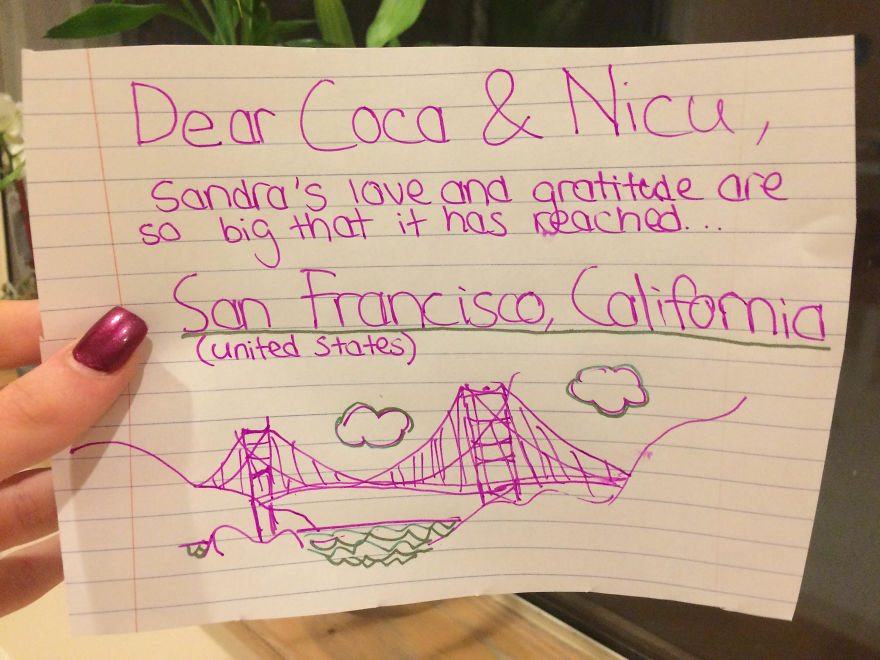 Dear Coca & Nicu,
Sandra's love and gratitude are
so big that it has reached...
San Francisco, California
(united states)